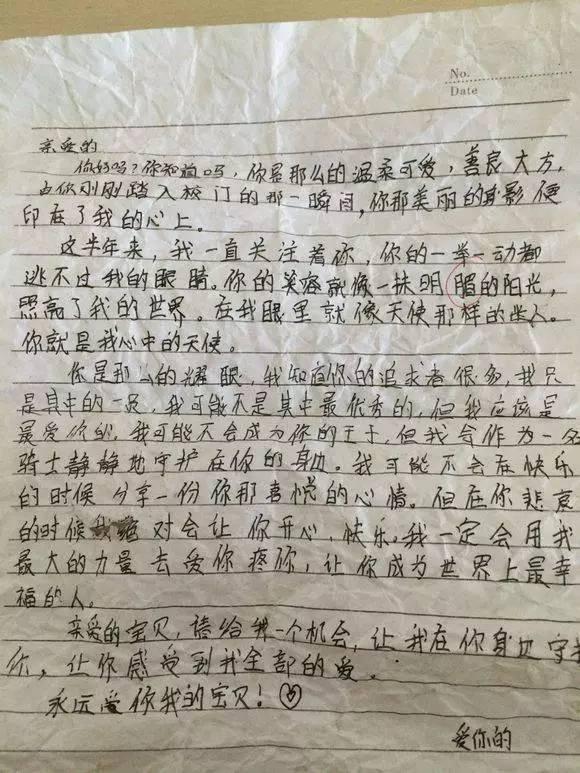 No.
Date
亲爱的
你好吗?你知道吗,你是那么的温柔可爱,善良大方,
当你刚刚踏入校门的那一瞬间,你那美丽的身影便
印在了我的心上。
这半年来,我一直关注着你,你的一举一动都
逃不过我的眼睛。你的笑容就像一抹明媚的阳光,
照亮了我的世界。在我眼里就像天使那样的迷人。
你就是我心中的天使。
你是那么的耀眼,我知道你的追求者很多,我只
是其中的一员,我可能不是其中最优秀的,但我应该是
最爱你的,我可能不会成为你的王子,但我会作为一名
骑士静静地守护在你的身边。我可能不会在快乐
的时候分享一份你那喜悦的心情。但在你悲哀
的时候绝对会让你开心、快乐。我一定会用我
最大的力量去爱你疼你,让你成为世界上最幸
福的人。
亲爱的宝贝,请给我一个机会,让我在你身边守
你,让你感受到我全部的爱。
永远爱你我的宝贝!
爱你的